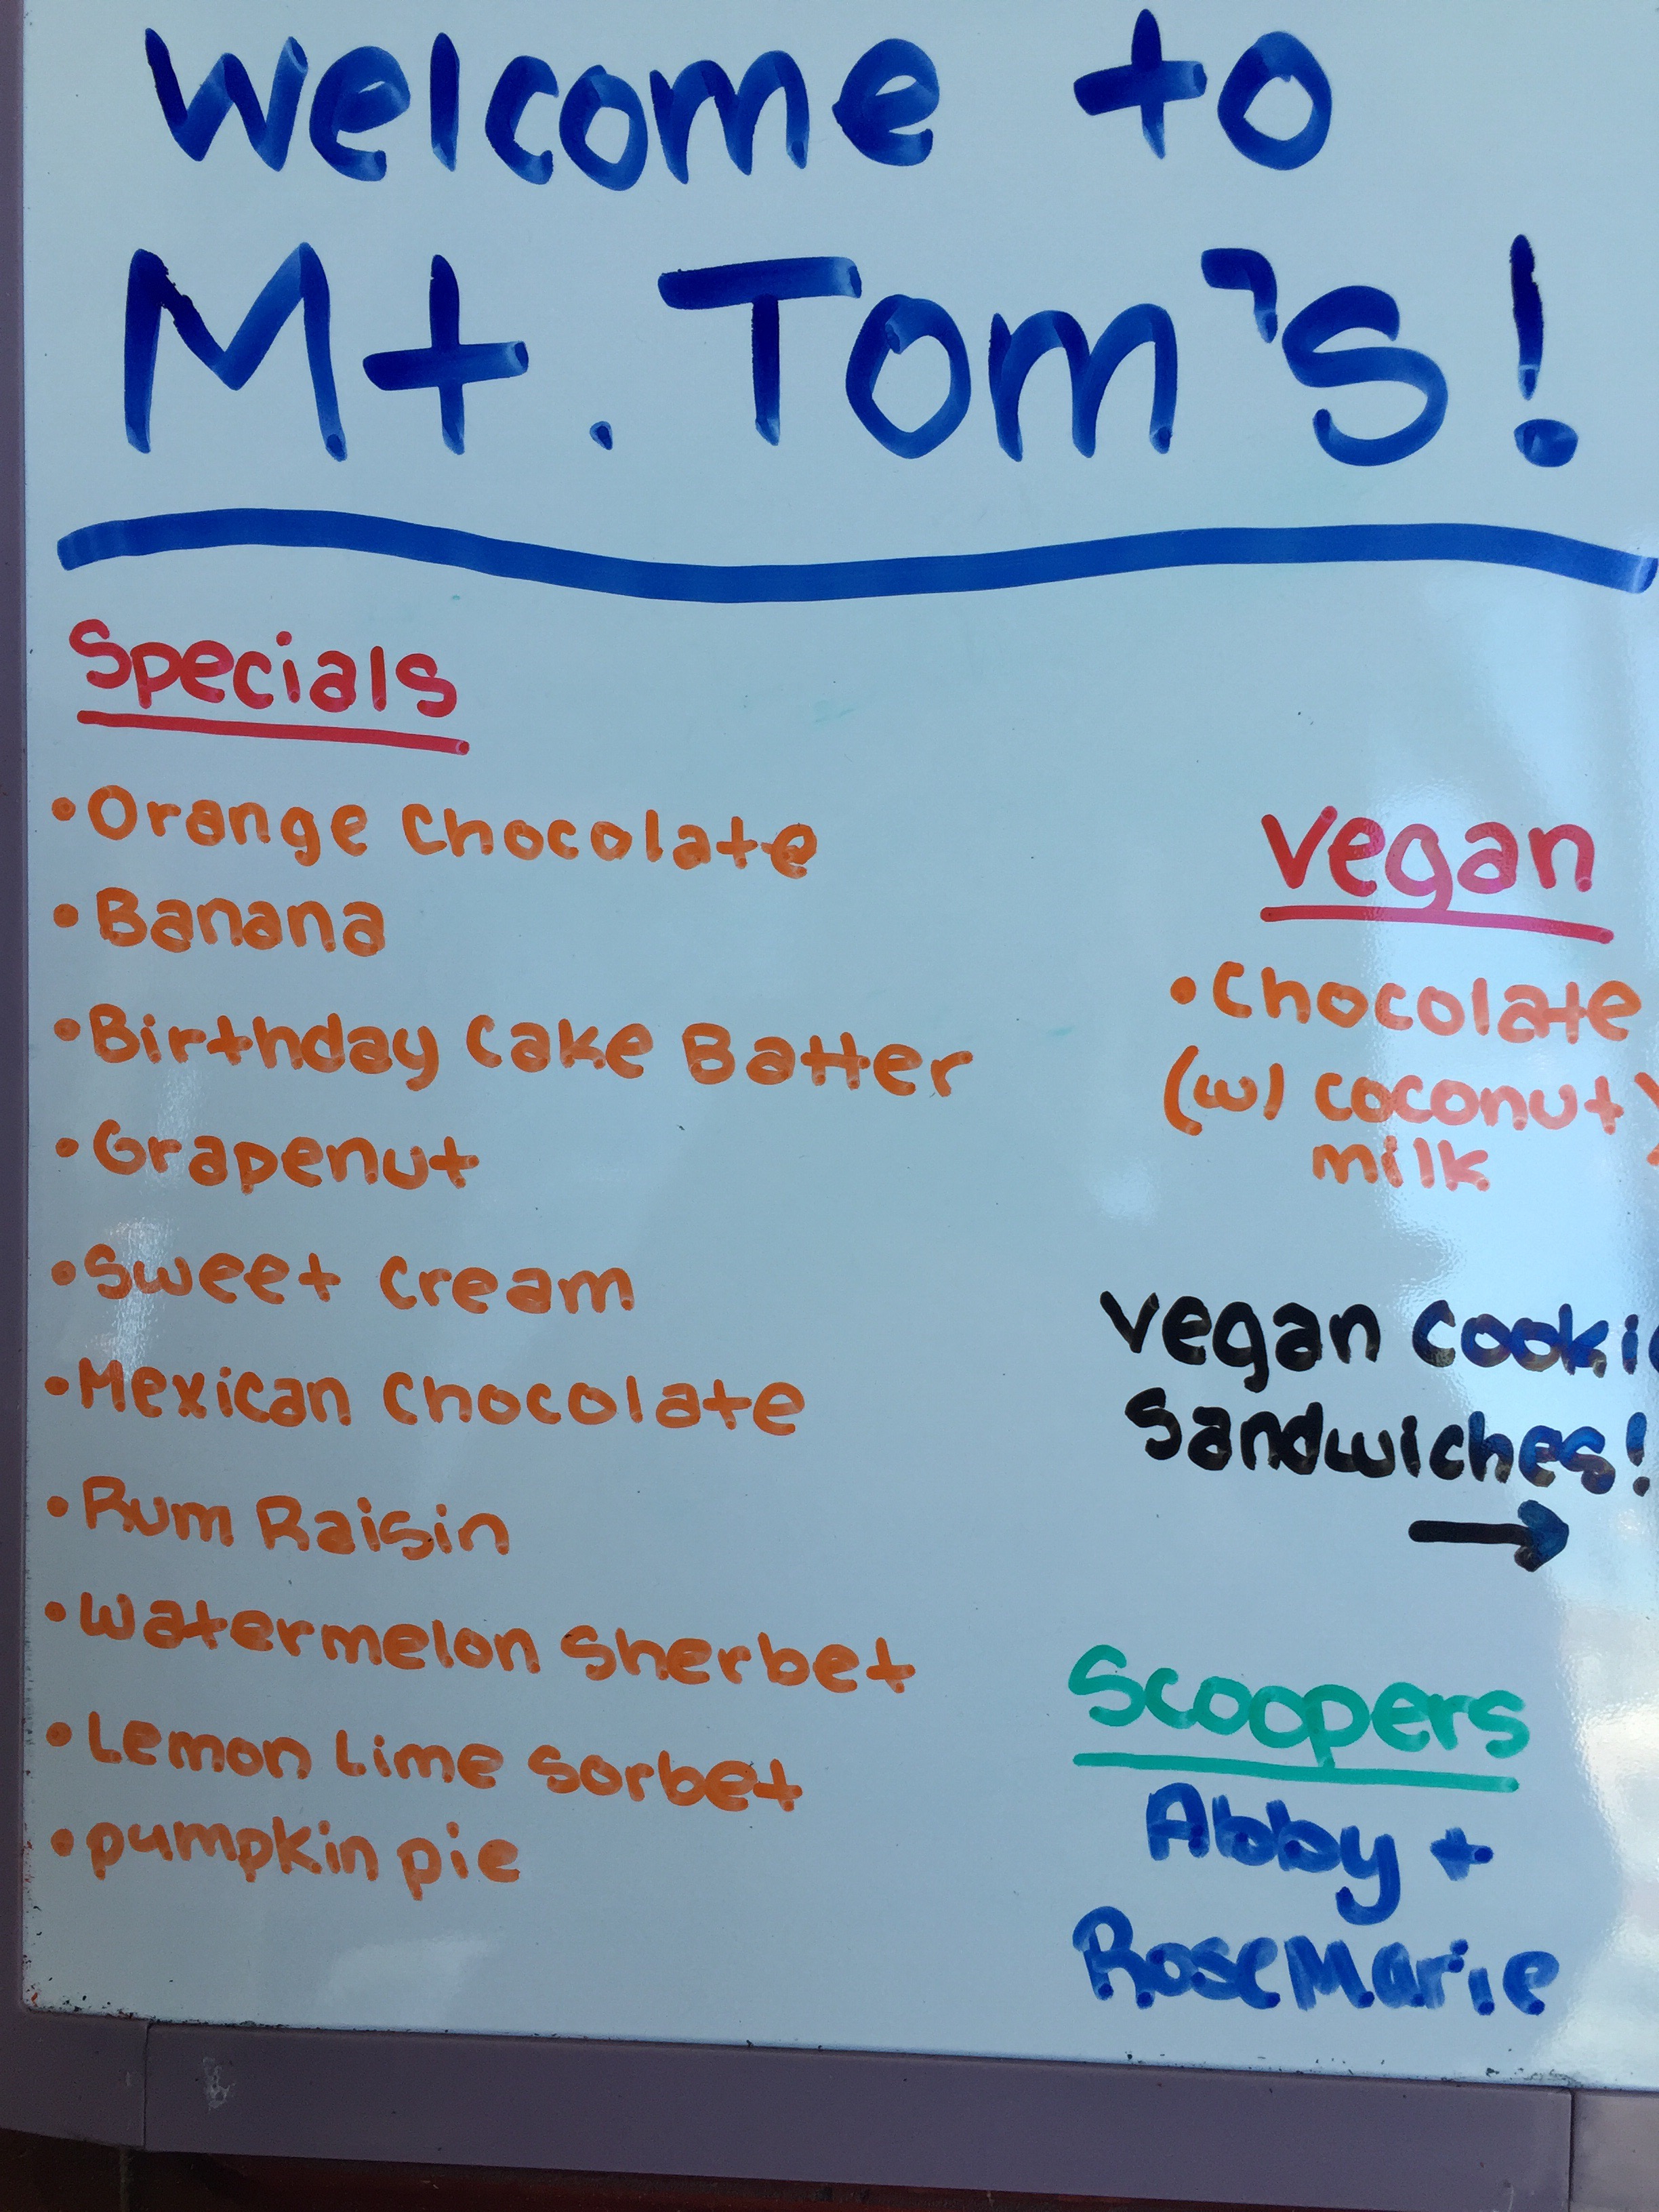 Welcome to
Mt. Tom's!
Specials
• Orange Chocolate
• Banana
• Birthday Cake Batter
• Grapenut
• Sweet Cream
• Mexican Chocolate
• Rum Raisin
• Watermelon Sherbet
• Lemon Lime Sorbet
• pumpkin pie
Vegan
• Chocolate
(w/ coconut)
milk
Vegan Cooki
Sandwiches!
→
Scoopers
Abby +
RoseMarie